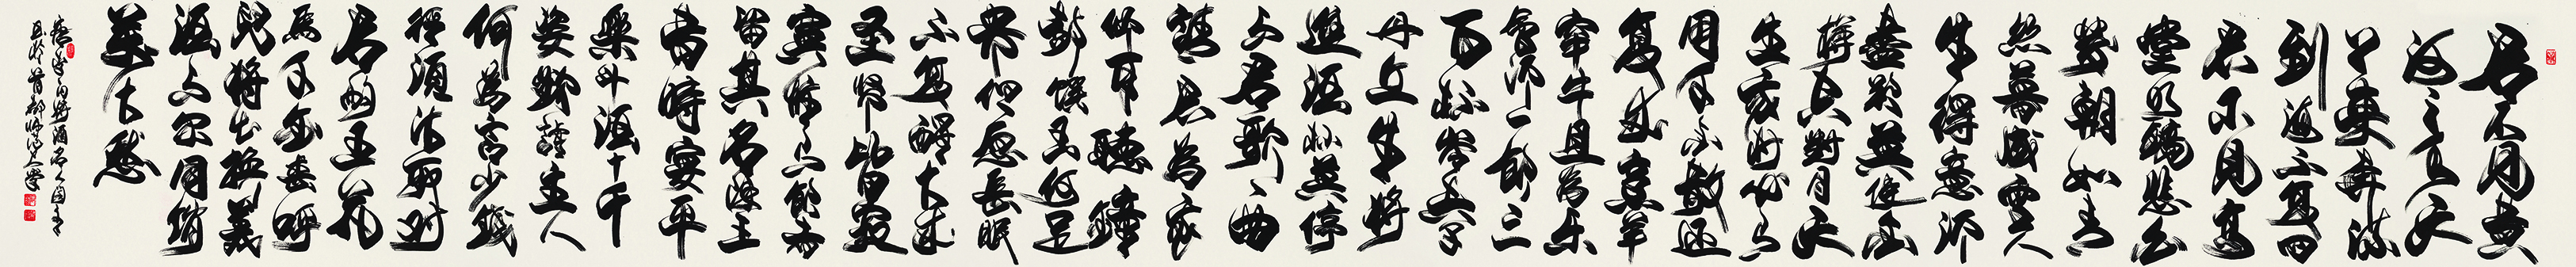 君不見黄
河之水天
上來奔流
到海不復回
君不見高
堂明鏡悲白
髮朝如青
絲暮成雪人
生得意須
盡歡莫使金
樽空對月天
生我材必有
用千金散還
復來烹羊
宰牛且為樂
會須一飲三
百杯岑夫子
丹丘生將
進酒杯莫停
与君歌一曲
請君為我
側耳聽鐘
鼓饌玉何足
貴但愿長眠
不復醒古來
聖賢皆寂
寞惟有飲者
留其名陳王
昔時宴平
樂斗酒十千
恣歡謔主人
何為言少錢
徑須沽取對
君酌五花
馬千金裘呼
兒將出換美
酒与尔同銷
萬古愁
李白將進酒